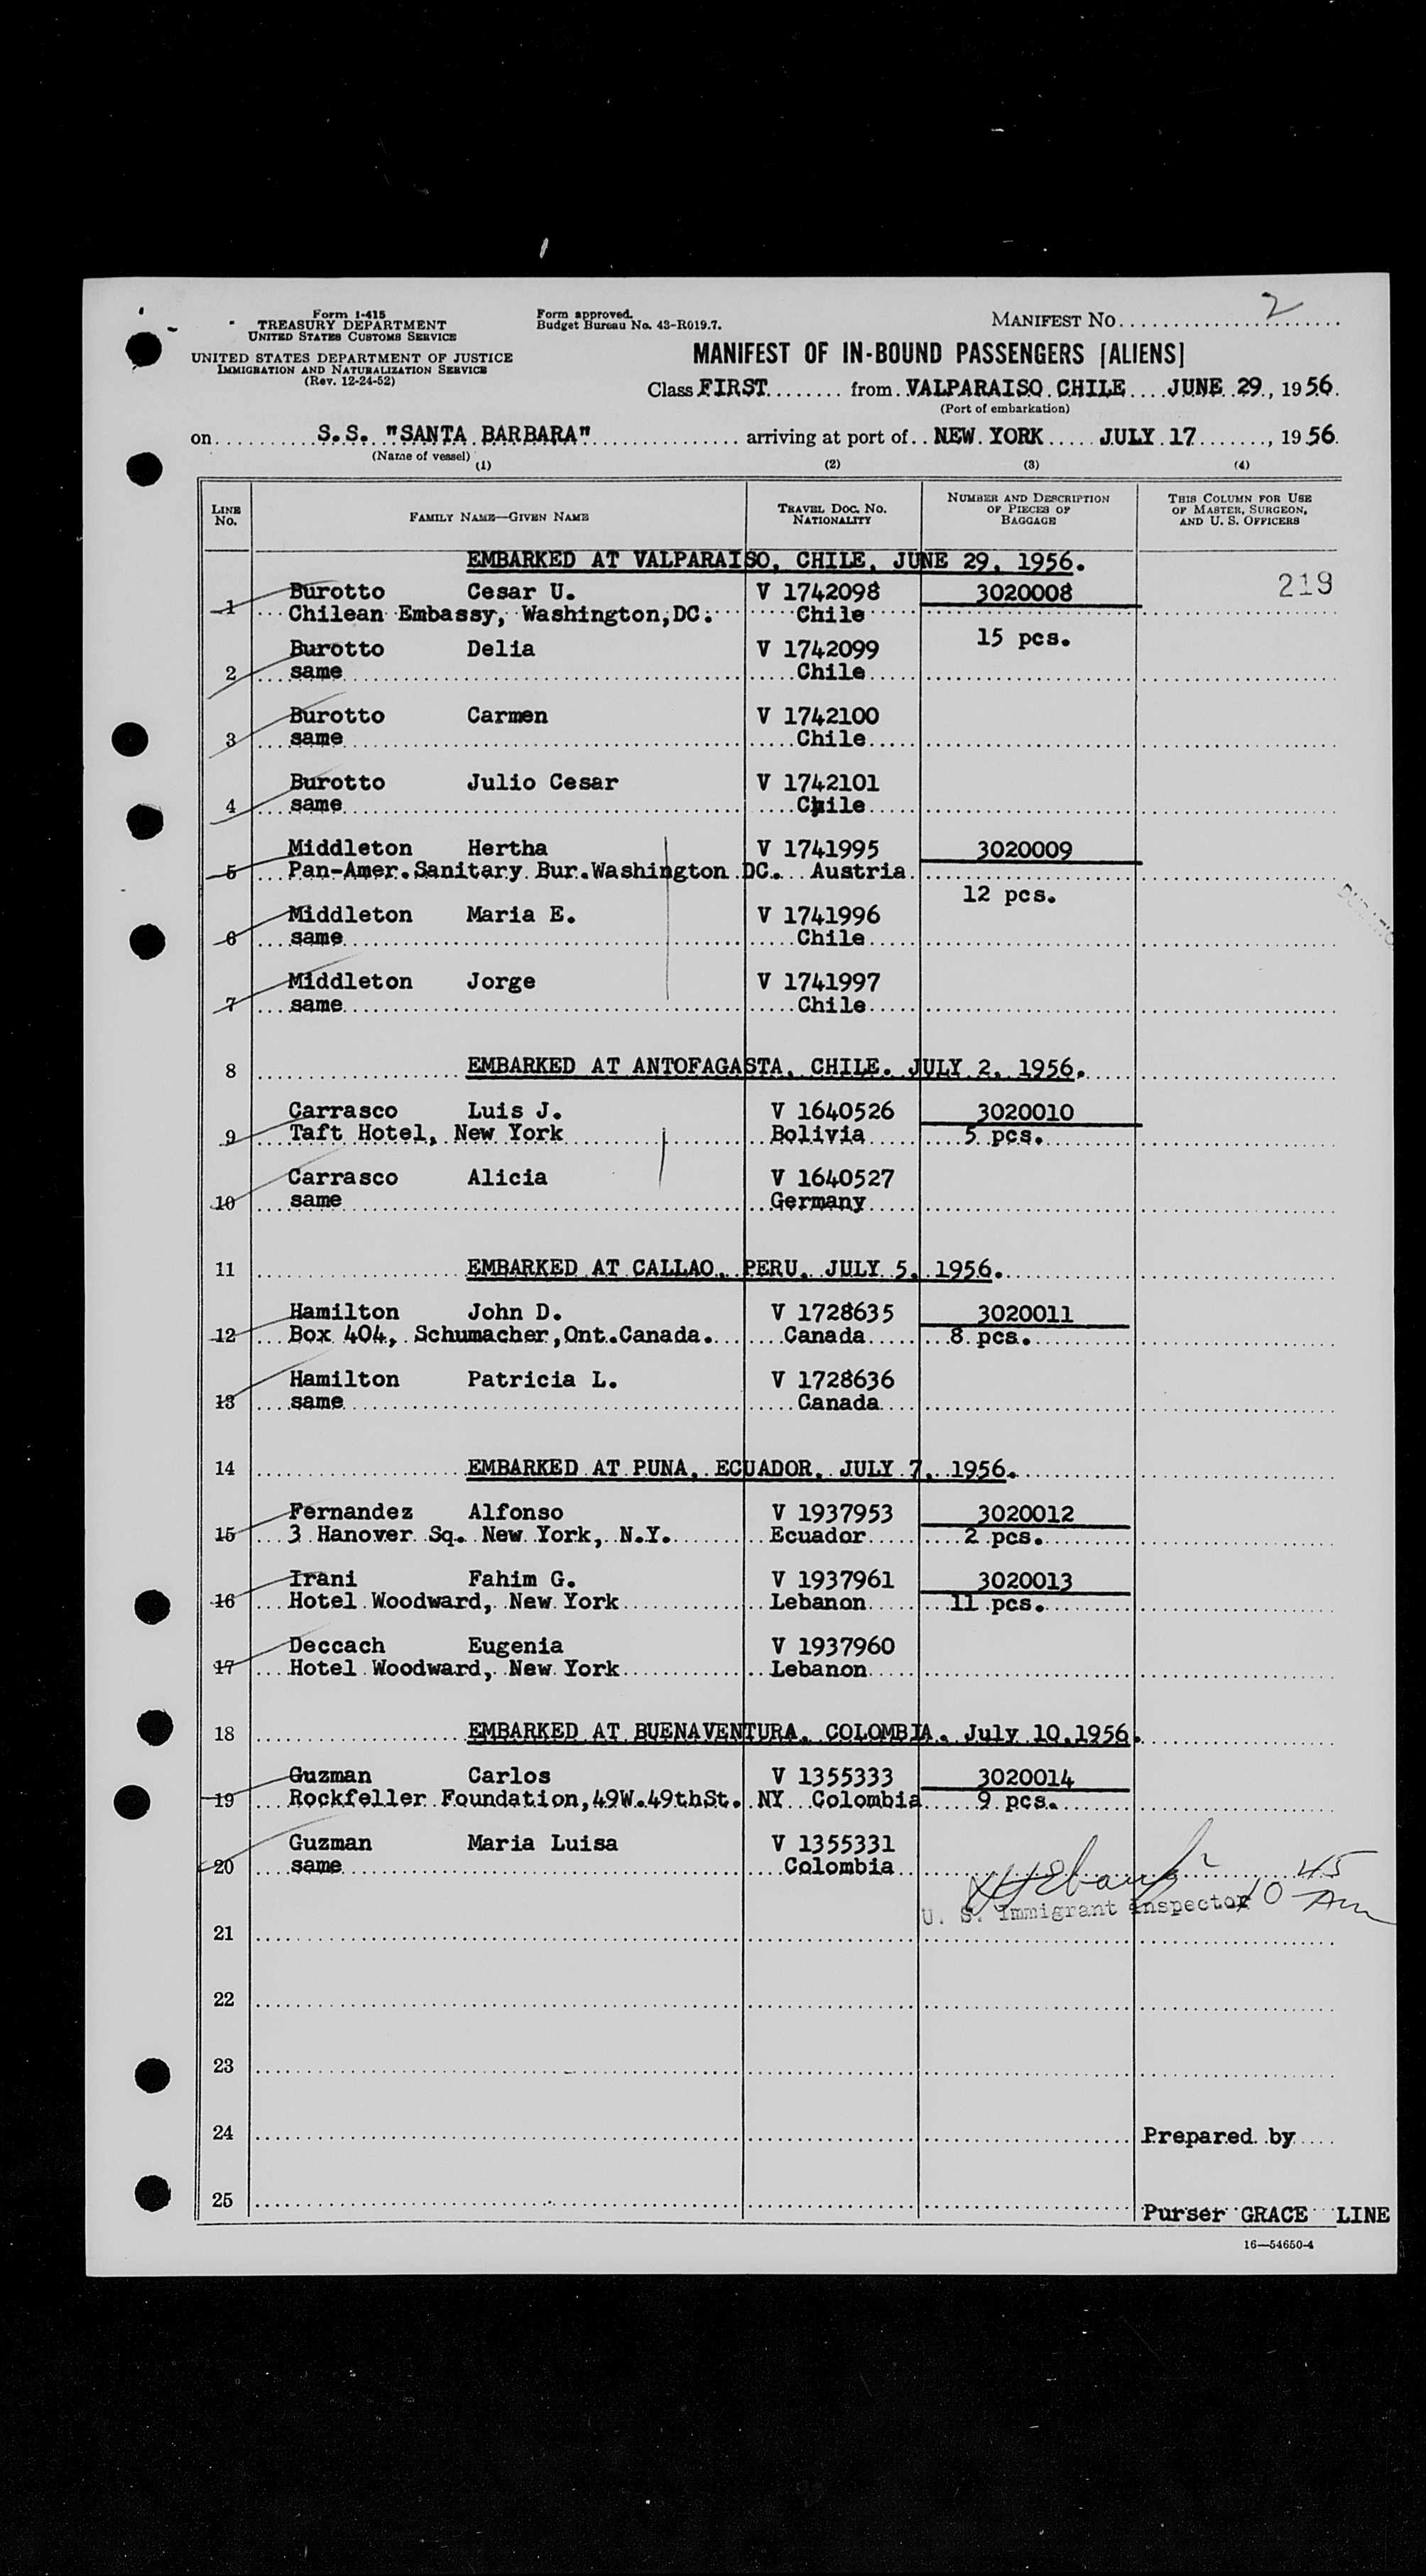 Form I-415
TREASURY DEPARTMENT
UNITED STATES CUSTOMS SERVICE
UNITED STATES DEPARTMENT OF JUSTICE
IMMIGRATION AND NATURALIZATION SERVICE
(Rev. 12-24-52)
Form approved.
Budget Bureau No. 43-R019.7.
MANIFEST NO. 2
MANIFEST OF IN-BOUND PASSENGERS [ALIENS]
Class FIRST from VALPARAISO CHILE JUNE 29, 1956.
(Port of embarkation)
on S.S. "SANTA BARBARA" arriving at port of NEW YORK JULY 17, 1956.
(Name of vessel)
(1) (2) (3) (4)
LINE NO. FAMILY NAME—GIVEN NAME TRAVEL DOC. NO. NATIONALITY NUMBER AND DESCRIPTION OF PIECES OF BAGGAGE THIS COLUMN FOR USE OF MASTER, SURGEON, AND U. S. OFFICERS
EMBARKED AT VALPARAISO, CHILE, JUNE 29, 1956.
Burotto Cesar U. V 1742098 3020008 219
1 Chilean Embassy, Washington,DC. Chile
15 pcs.
Burotto Delia V 1742099
2 same Chile
Burotto Carmen V 1742100
3 same Chile
Burotto Julio Cesar V 1742101
4 same Chile
Middleton Hertha V 1741995 3020009
5 Pan-Amer.Sanitary Bur.Washington DC. Austria
12 pcs.
Middleton Maria E. V 1741996
6 same Chile
Middleton Jorge V 1741997
7 same Chile
8 EMBARKED AT ANTOFAGASTA, CHILE. JULY 2, 1956.
Carrasco Luis J. V 1640526 3020010
9 Taft Hotel, New York Bolivia 5 pcs.
Carrasco Alicia V 1640527
10 same Germany
11 EMBARKED AT CALLAO, PERU, JULY 5, 1956.
Hamilton John D. V 1728635 3020011
12 Box 404, Schumacher,Ont.Canada. Canada 8 pcs.
Hamilton Patricia L. V 1728636
13 same Canada
14 EMBARKED AT PUNA, ECUADOR, JULY 7, 1956.
Fernandez Alfonso V 1937953 3020012
15 3 Hanover Sq. New York, N.Y. Ecuador 2 pcs.
Irani Fahim G. V 1937961 3020013
16 Hotel Woodward, New York Lebanon 11 pcs.
Deccach Eugenia V 1937960
17 Hotel Woodward, New York Lebanon
18 EMBARKED AT BUENAVENTURA, COLOMBIA. July 10,1956.
Guzman Carlos V 1355333 3020014
19 Rockfeller Foundation,49W.49thSt. NY Colombia 9 pcs.
Guzman Maria Luisa V 1355331
20 same Colombia
U. S. Immigrant Inspector 10 45 Am
21
22
23
24 Prepared by
25 Purser GRACE LINE
16—54650-4